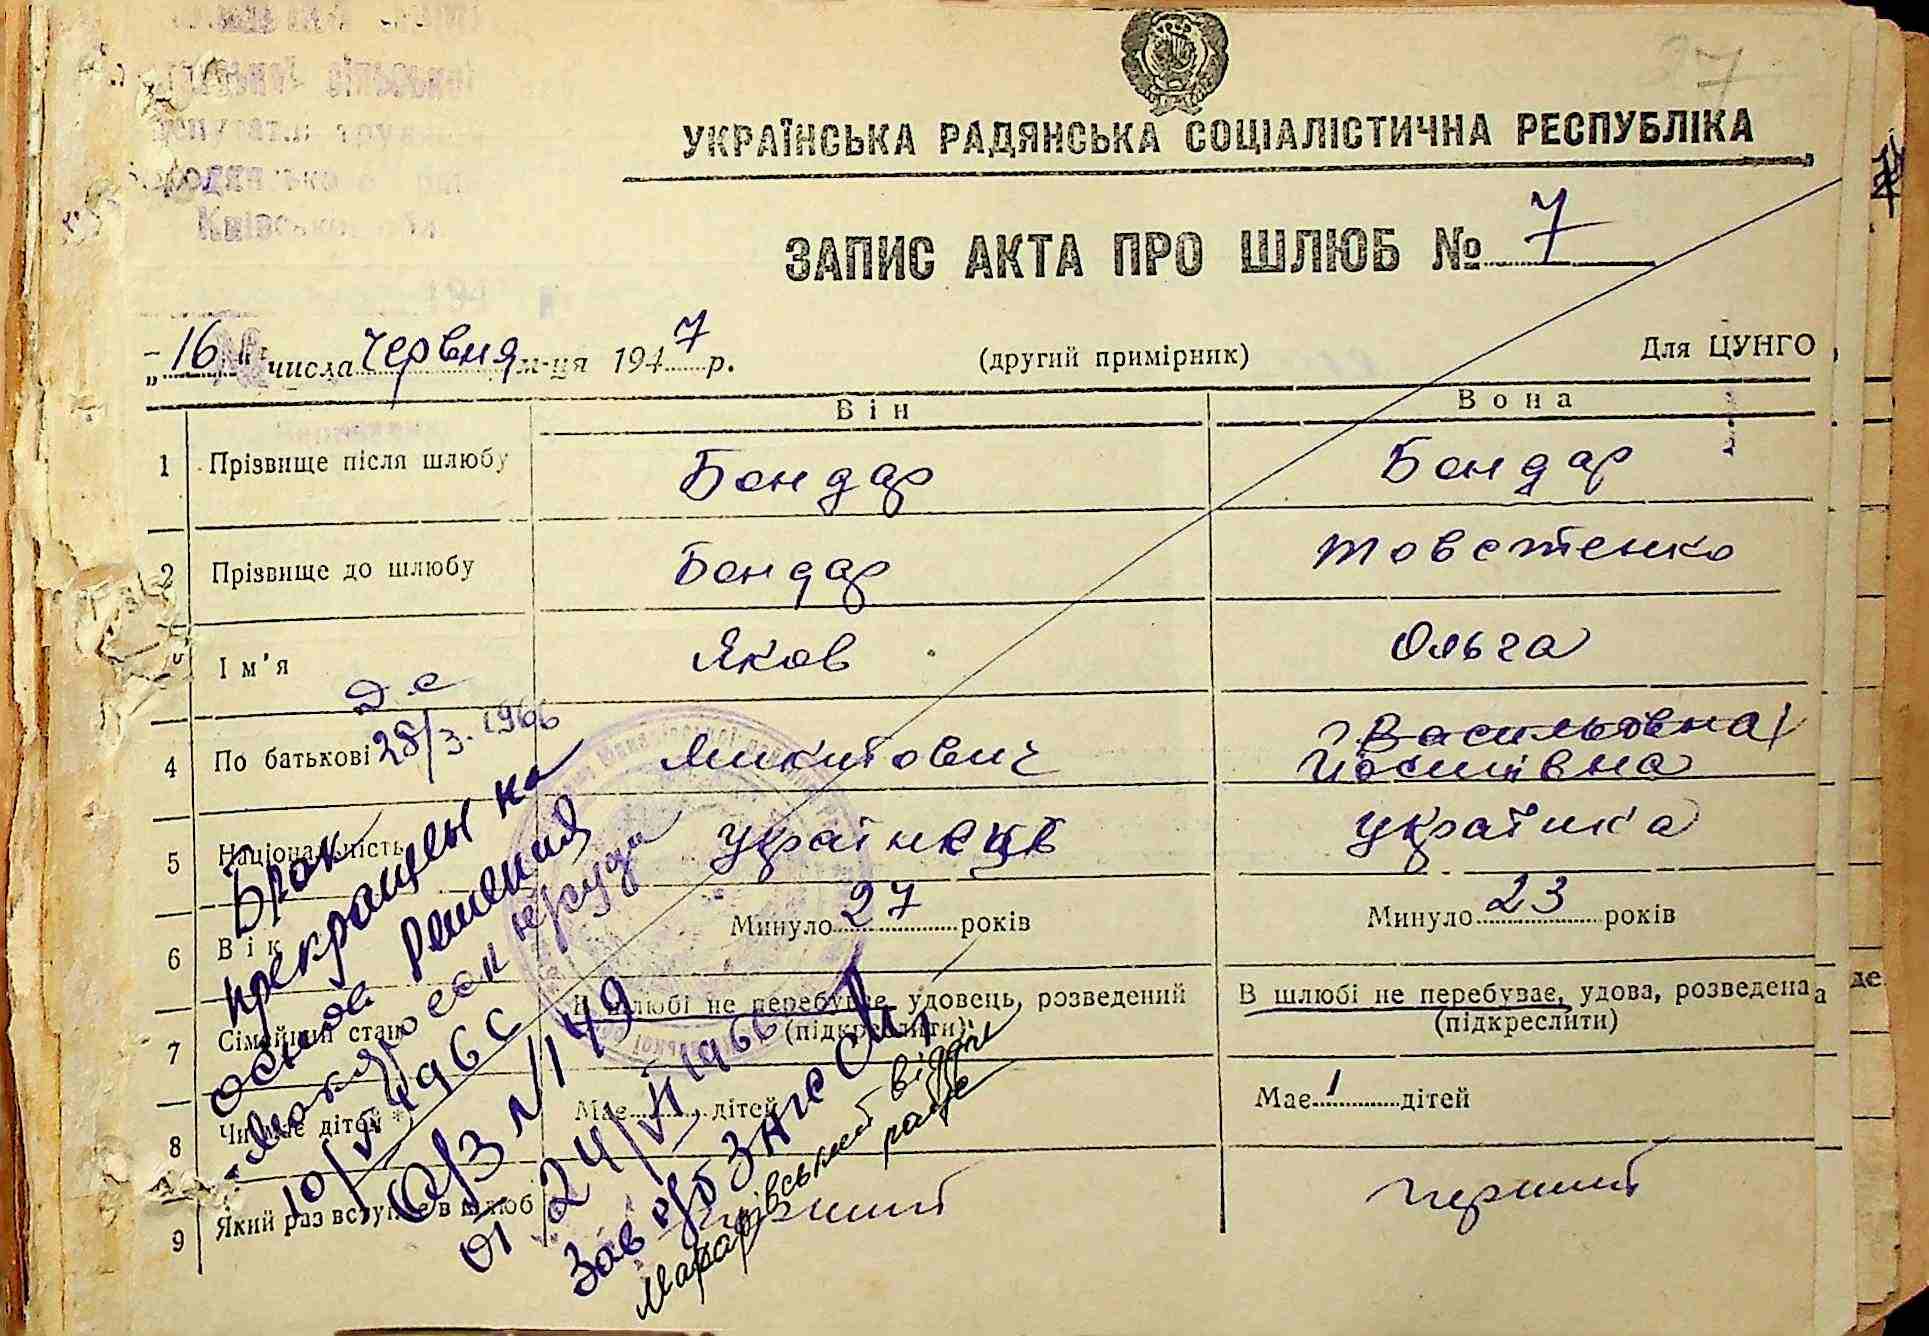 27
УКРАЇНСЬКА РАДЯНСЬКА СОЦІАЛІСТИЧНА РЕСПУБЛІКА
ЗАПИС АКТА ПРО ШЛЮБ № 7
„16" числа червня м-ця 1947 р. (другий примірник) Для ЦУНГО
Він Вона
1 Прізвище після шлюбу Бондар Бондар
2 Прізвище до шлюбу Бондар Товстенко
Ім'я Яков Ольга
4 По батькові Микитович Васильовна
Йосипівна
5 Національність українець українка
6 Вік Минуло 27 років Минуло 23 років
7 Сімейний стан В шлюбі не перебуває, удовець, розведений В шлюбі не перебуває, удова, розведена
(підкреслити) (підкреслити)
8 Чи має дітей *) Має дітей Має 1 дітей
9 Який раз вступає в шлюб перший перший
Д.с
28/3.1966
Брак
прекращен на
основа решения
нрсуда
10/V 1966
а/з № 49
от 24/VI 1966
Зав р/б ЗАГС